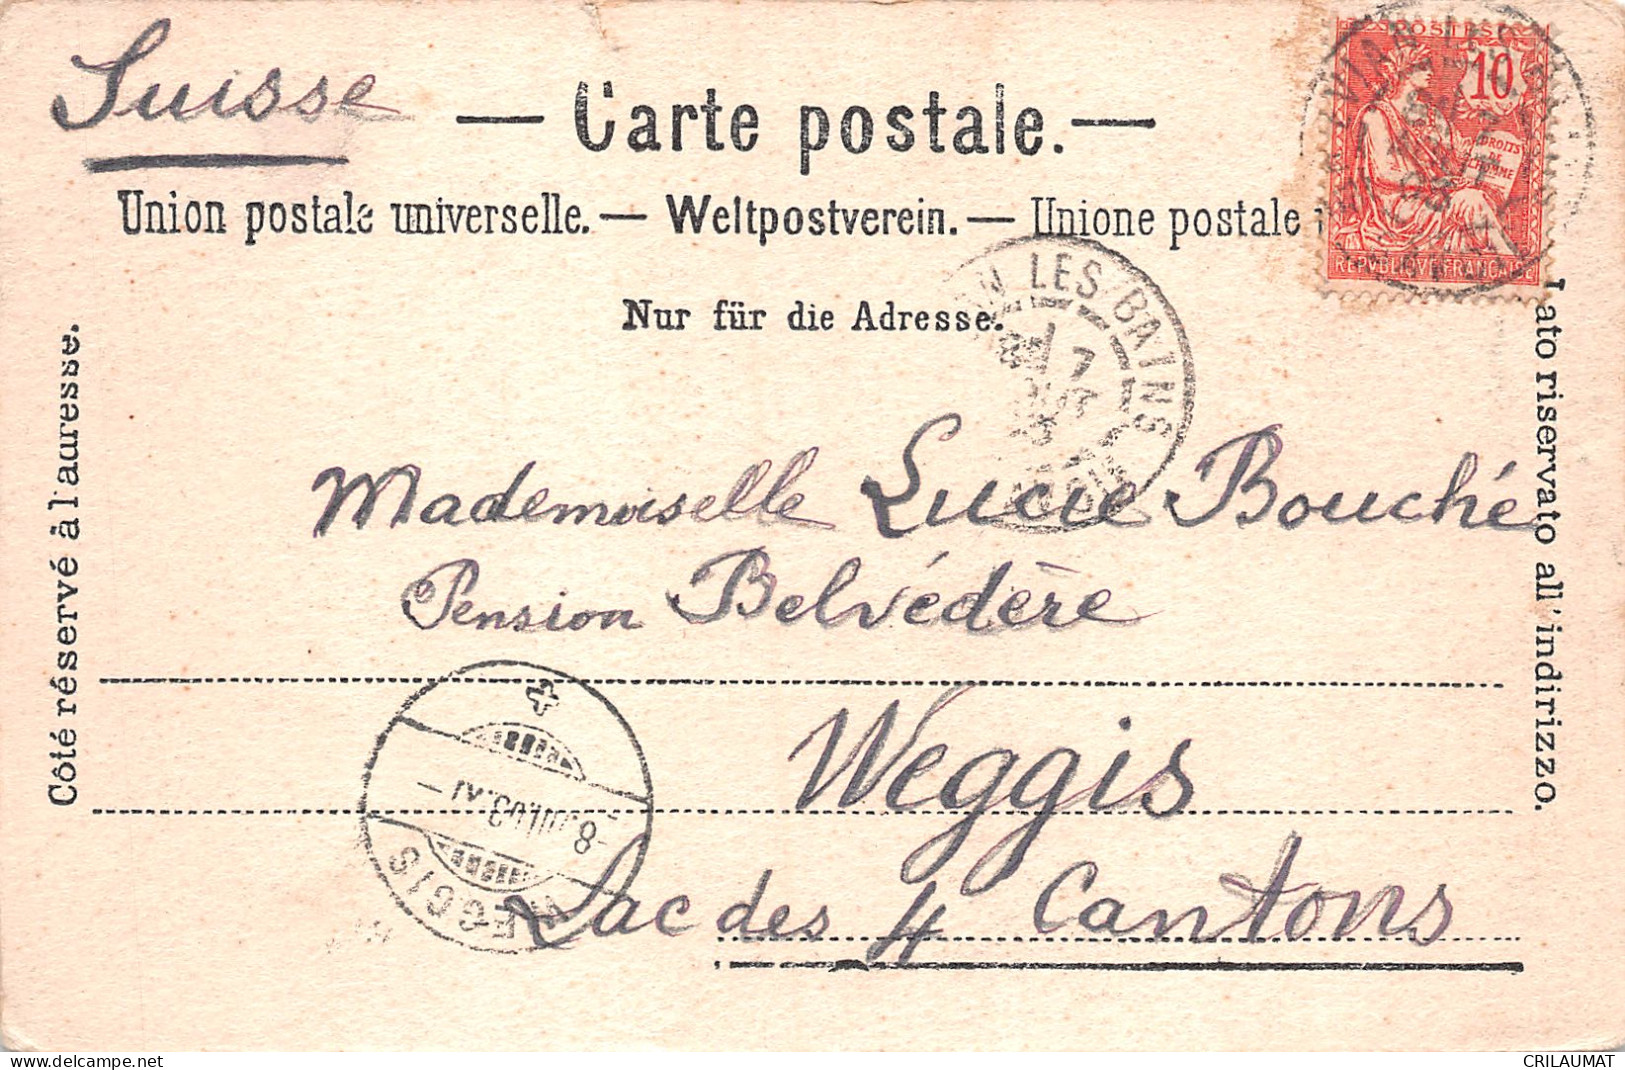 Suisse
— Carte postale. —
Union postale universelle. — Weltpostverein. — Unione postale
Nur für die Adresse.
POSTES
10
DROITS
DE
REPVBLIQVE FRANÇAISE
LES BAINS
7
Côté réservé à l'auresse.
Lato riservato all' indirizzo.
Mademoiselle Lucie Bouché
Pension Belvédère
Weggis
Lac des 4 Cantons
WEGGIS
-8.VII.03.XI-
delcampe.net
CRILAUMAT